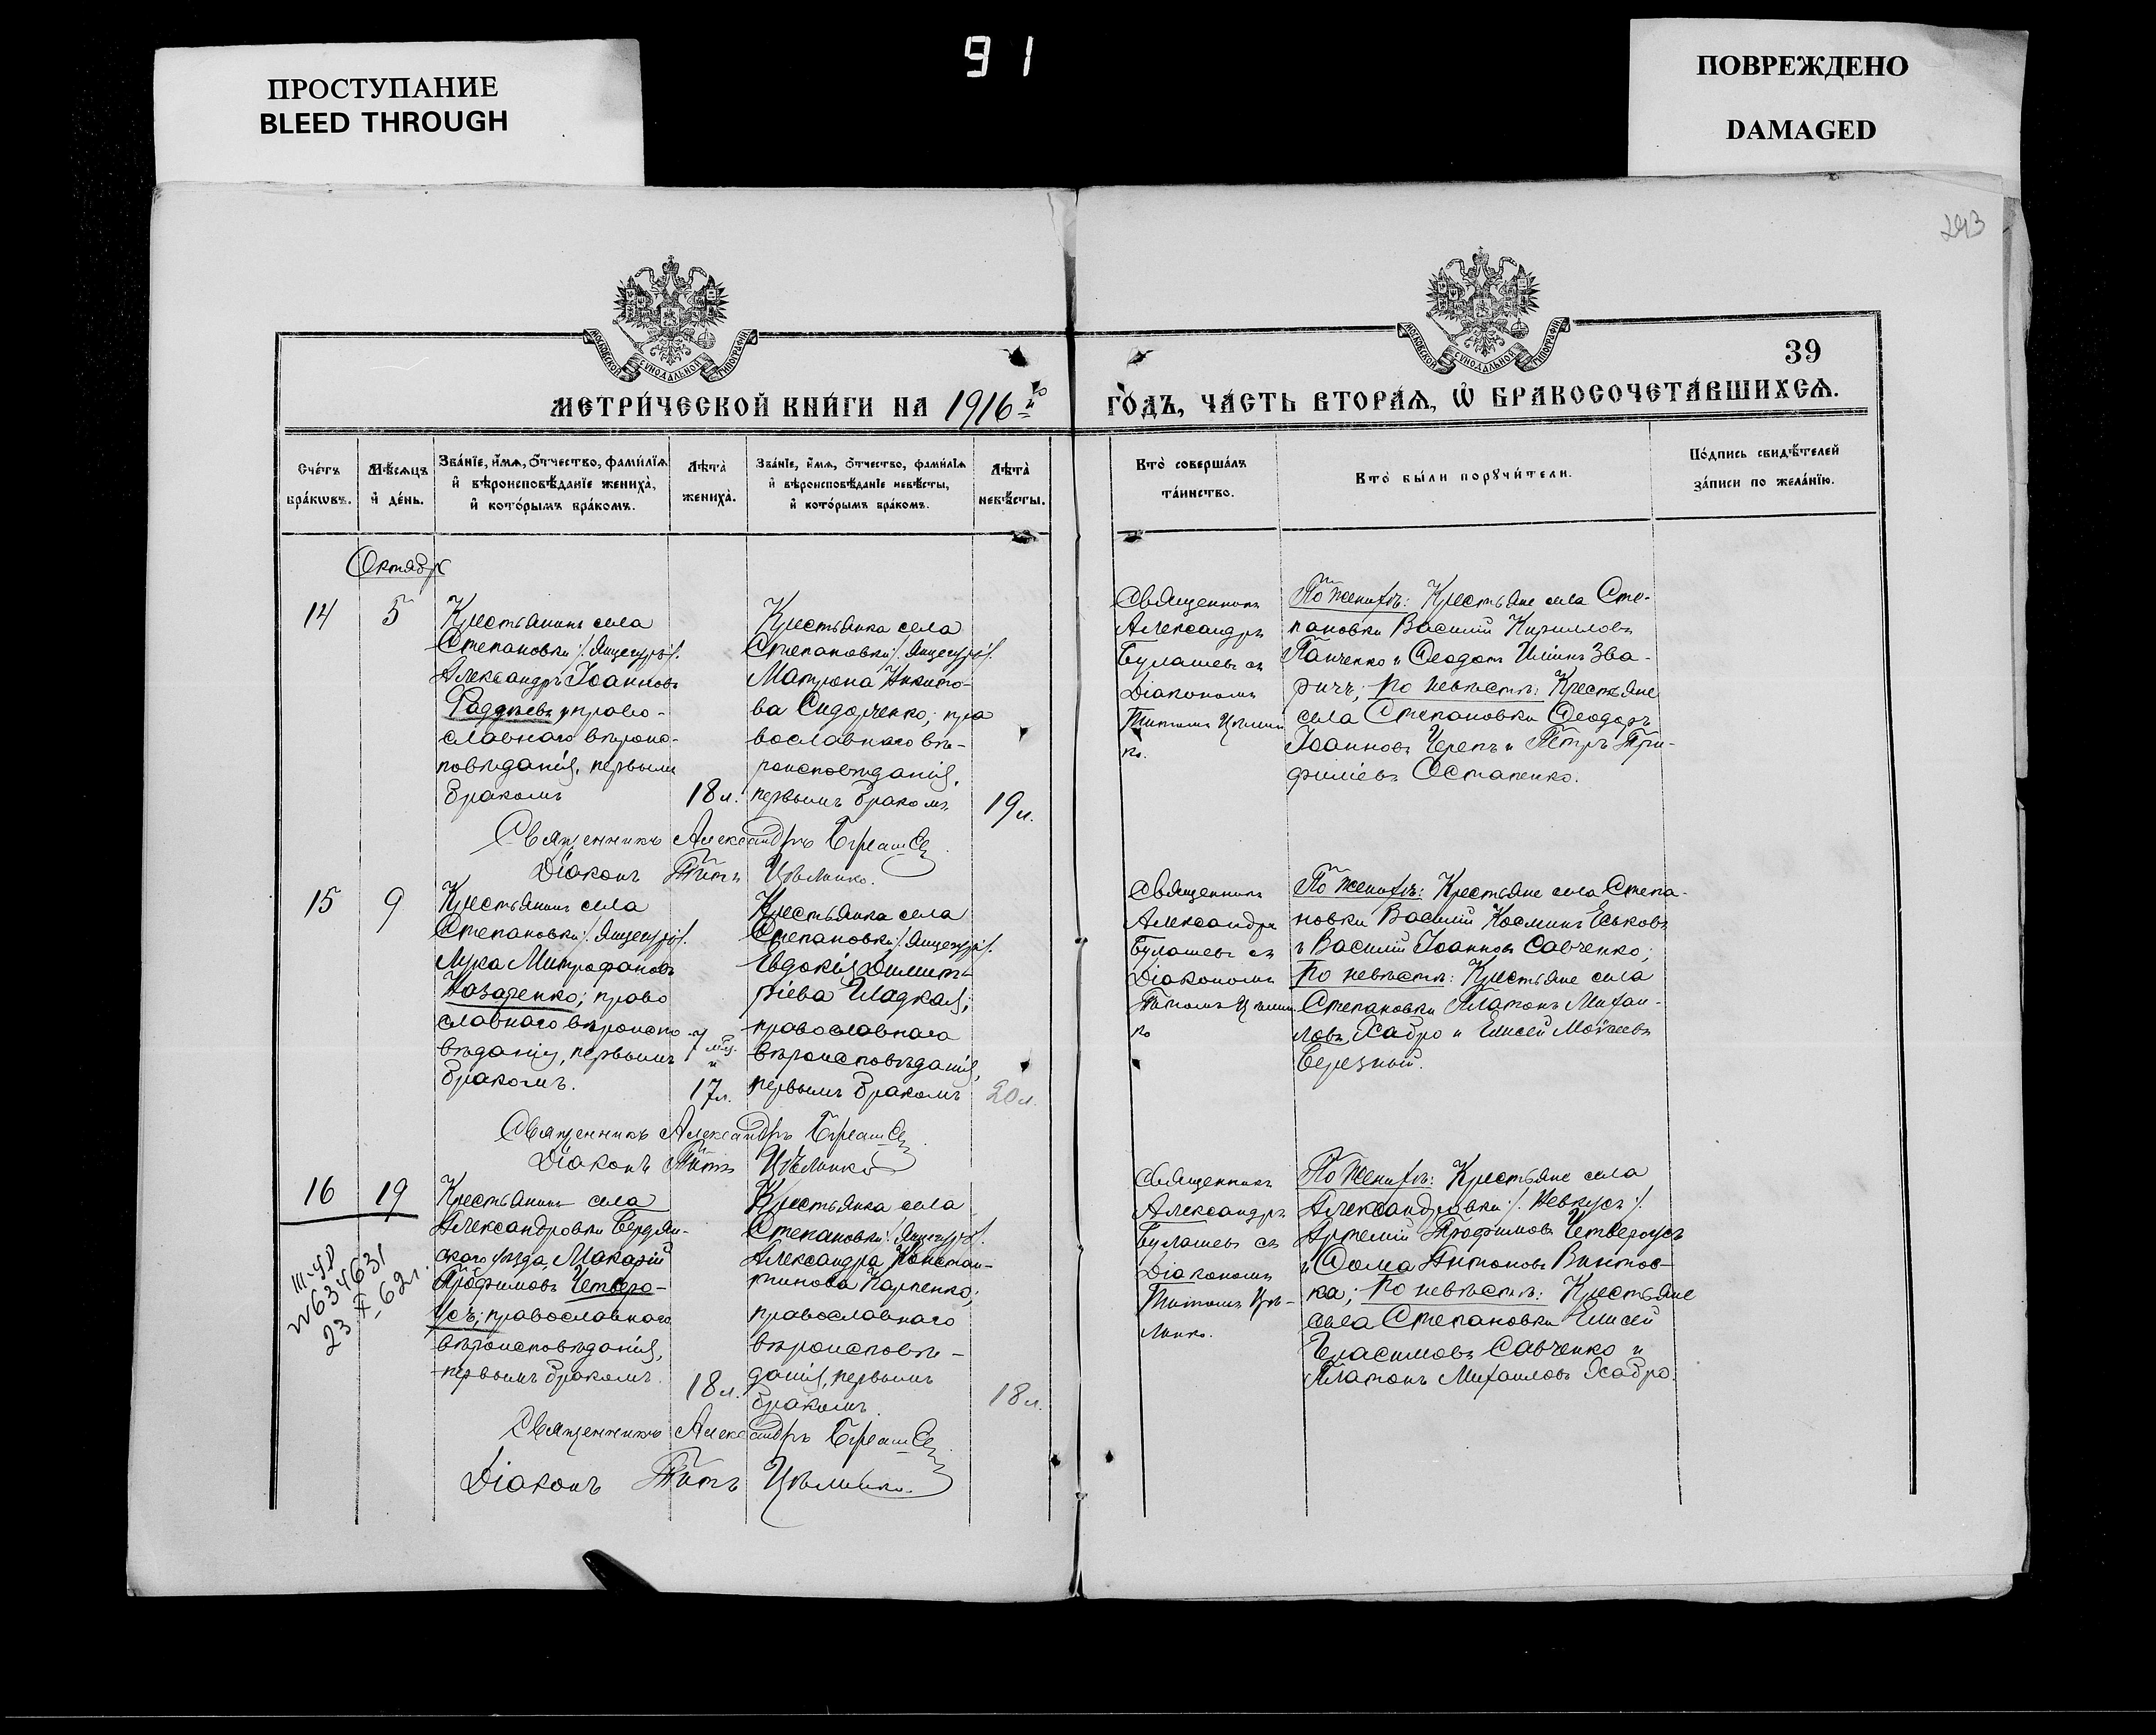 91
ПРОСТУПАНИЕ
BLEED THROUGH
ПОВРЕЖДЕНО
DAMAGED
293
МОСКОВСКОЙ СѴНОДАЛЬНОЙ ТИПОГРАФІИ
МОСКОВСКОЙ СѴНОДАЛЬНОЙ ТИПОГРАФІИ
39
МЕТРИ́ЧЕСКОЙ КНИ́ГИ НА 1916-й
ГО́ДЪ, ЧА́СТЬ ВТОРА́Ѧ, Ѡ҆ БРАКОСОЧЕТА́ВШИХСѦ.
Сче́тъ
бра́кѡвъ.
Мѣ́сѧцъ
и҆ де́нь.
Зва́нїе, и҆́мѧ, ѻ҆́тчество, фами́лїѧ
и҆ вѣроисповѣ́данїе жениха̀,
и҆ кото́рымъ бра́комъ.
Лѣта̀
жениха̀.
Зва́нїе, и҆́мѧ, ѻ҆́тчество, фами́лїѧ
и҆ вѣроисповѣ́данїе невѣ́сты,
и҆ кото́рымъ бра́комъ.
Лѣта̀
невѣ́сты.
Кто̀ соверша́лъ
та́инство.
Кто̀ бы́ли порꙋчи́тели.
По́дпись свидѣ́телей
за́писи по жела́нїю.
Октябрь
14
5
Крестьянинъ села
Степановки /: Янцекуръ :/
Александръ Іоанновъ
Фаддѣевъ; право-
славнаго вѣроис-
повѣданія, первымъ
бракомъ
18 л.
Крестьянка села
Степановки /: Янцекуръ :/
Матрона Никито-
ва Сидорченко; пра
вославнаго вѣ-
роисповѣданія,
первымъ бракомъ
19 л.
Священникъ
Александръ
Булашевъ съ
Діакономъ
Титомъ Цѣлин
ко.
По женихѣ: Крестьяне села Сте-
пановки Василій Кирилловъ
Панченко и Ѳеодотъ Иліинъ Зва-
ричъ; По невѣстѣ: Крестьяне
села Степановки Ѳеодоръ
Іоанновъ Черепъ и Петръ Три-
филіевъ Остапенко.
Священникъ Александръ Булашевъ
Діаконъ Титъ Цѣлинко.
15
9
Крестьянинъ села
Степановки /: Янцекуръ :/
Лука Митрофановъ
Назаренко; право
славнаго вѣроиспо-
вѣданія, первымъ
бракомъ.
7 мѣс.
и
17 л.
Крестьянка села
Степановки /: Янцекуръ :/
Евдокія Димит-
ріева Гладкая;
православнаго
вѣроисповѣданія,
первымъ бракомъ
20 л.
Священникъ
Александръ
Булашевъ съ
Діакономъ
Титомъ Цѣлин
ко
По женихѣ: Крестьяне села Степа-
новки Василій Косминъ Еськовъ
и Василій Іоанновъ Савченко;
По невѣстѣ: Крестьяне села
Степановки Платонъ Михаи-
ловъ Хабро и Елисей Моѵсеевъ
Березный.
Священникъ Александръ Булашевъ
Діаконъ Титъ Цѣлинко
16
19
III-ЧР
№ 634631
23 X-62 г.
Крестьянинъ села
Александровки Бердян-
скаго уѣзда, Макарій
Трофимовъ Четверо-
усъ; православнаго
вѣроисповѣданія,
первымъ бракомъ.
18 л.
Крестьянка села
Степановки /: Янцекуръ :/
Александра Констан-
тинова Карпенко;
православнаго
вѣроисповѣ-
данія, первымъ
бракомъ.
18 л.
Священникъ
Александръ
Булашевъ съ
Діакономъ
Титомъ Цѣ-
линко.
По женихѣ: Крестьяне села
Александровки /: Невкусъ :/
Артемій Трофимовъ Четвероусъ
и Ѳома Антоновъ Винтов-
ка; По невѣстѣ: Крестьяне
села Степановки Елисей
Герасимовъ Савченко и
Платонъ Михаиловъ Хабро.
Священникъ Александръ Булашевъ
Діаконъ Титъ Цѣлинко.